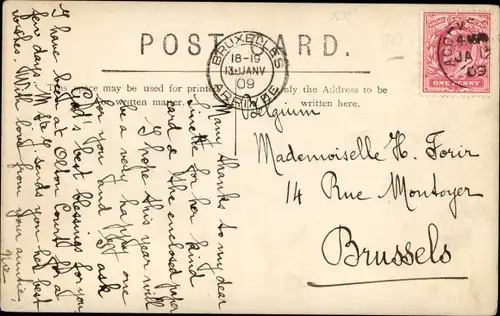 POST CARD.
This space may be used for printed or written matter.
only the Address to be written here.
BRUXELLES
18-19
13 JANV
09
ARRIVEE
JA
09
ONE PENNY
Many thanks to my dear
Linette for her kind
card & the enclosed paper
I hope this year will
be a very happy one
for you and I ask
God's best blessings for you
I have been at Olton Court for a
few days. M sends you her best
wishes. With love from your auntie
Belgium
Mademoiselle H. Forir
14 Rue Montoyer
Brussels